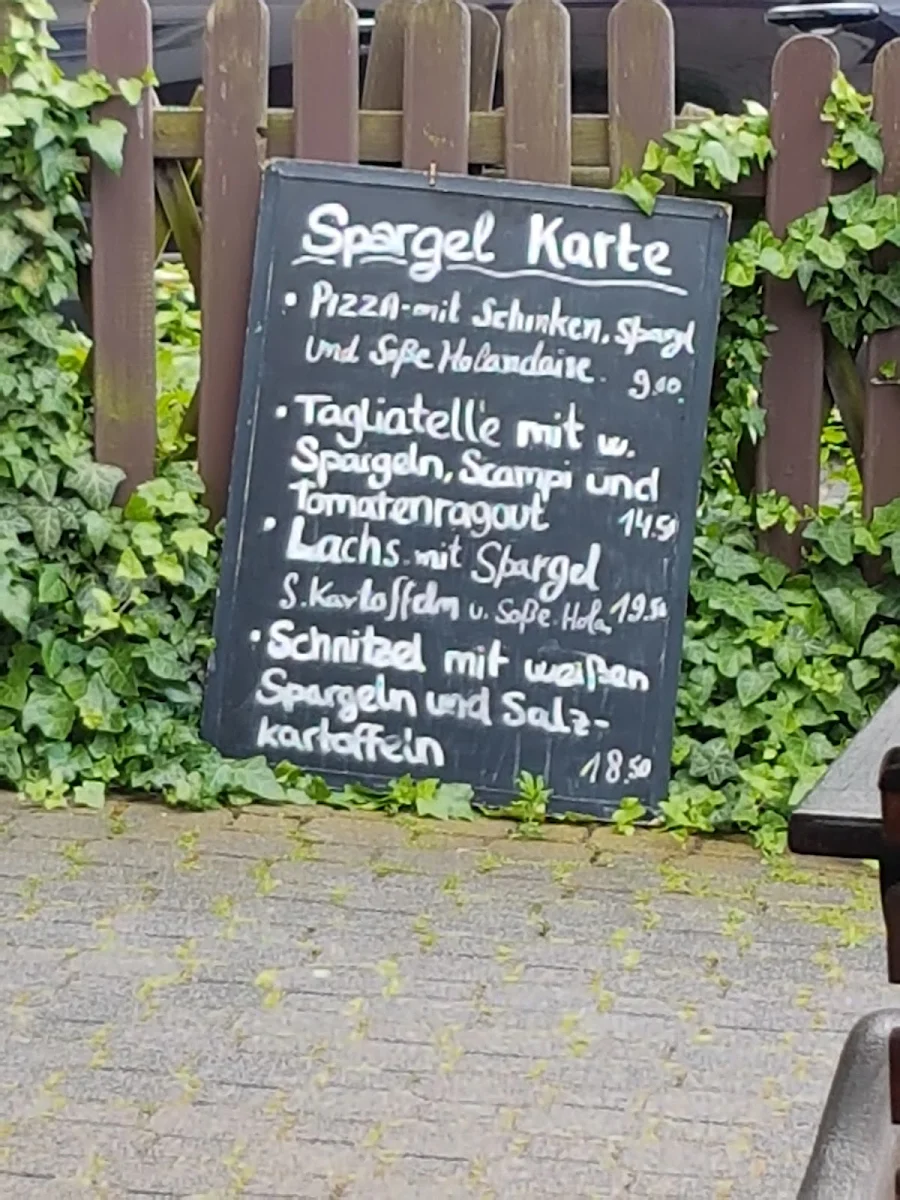 Spargel Karte
• Pizza-mit Schinken, Spargl
und Soße Holandaise. 9.00.
• Tagliatelle mit w.
Spargeln, Scampi und
Tomatenragout 14.50
• Lachs mit Spargel
S. Kartoffeln u. Soße Hola. 19.50
• Schnitzel mit weißen
Spargeln und Salz-
kartoffeln 18.50